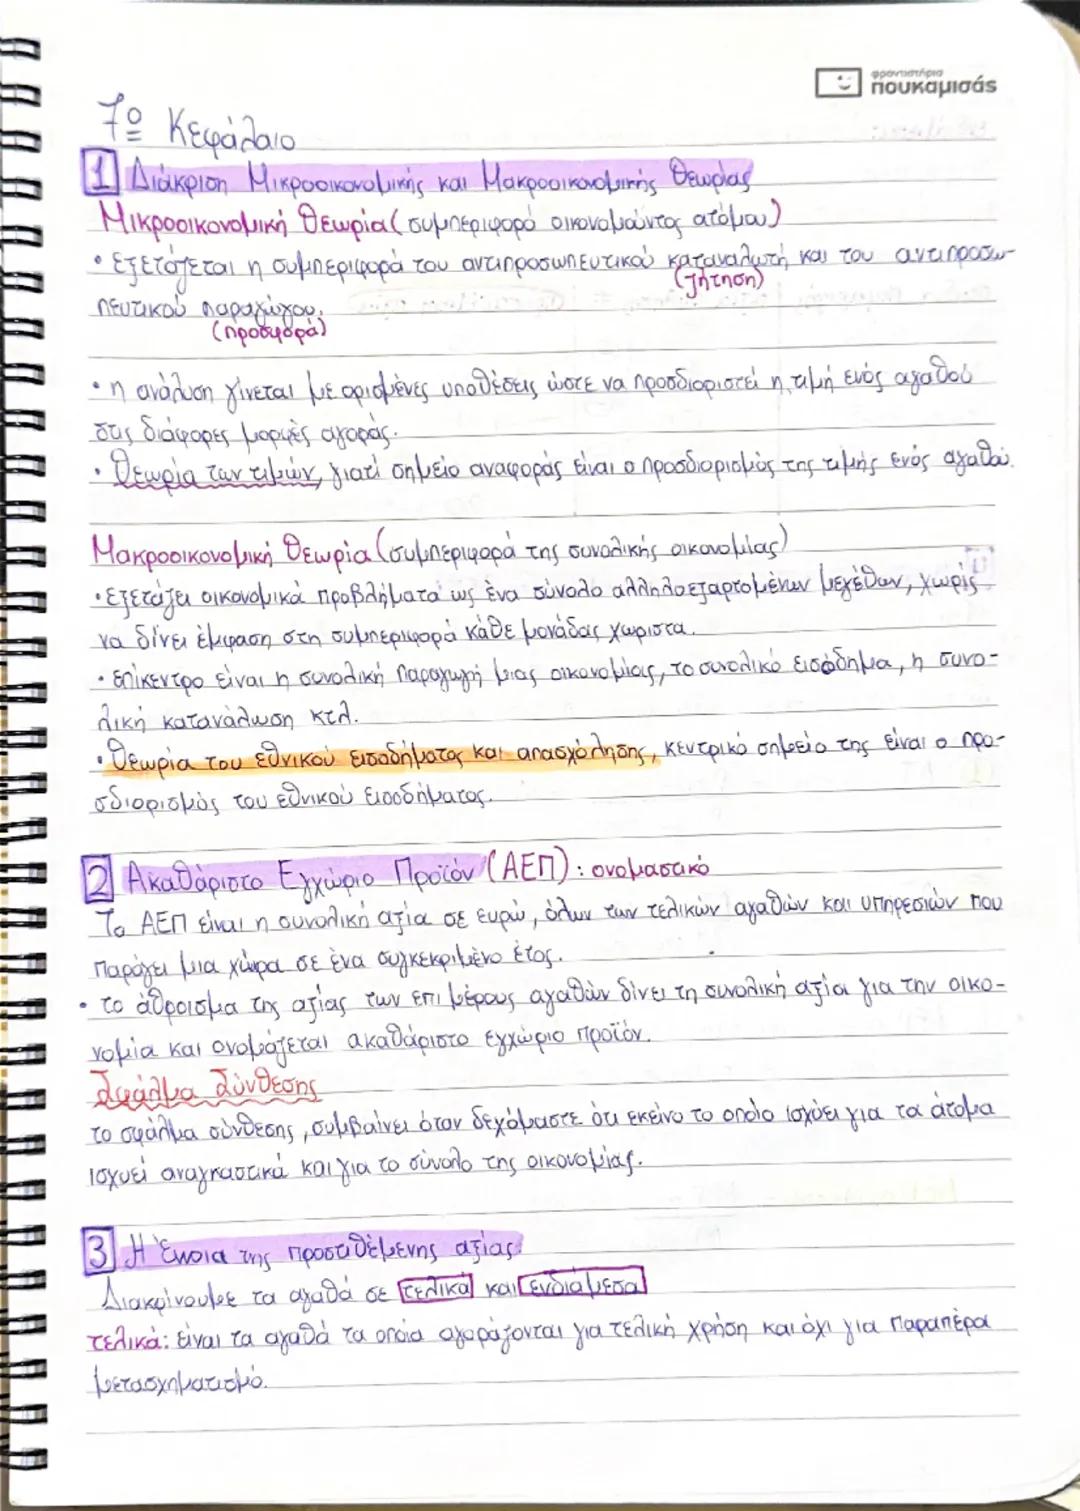 φροντιστήρια
πουκαμισάς
7º Κεφάλαιο
1 Διάκριση Μικροοικονομικής και Μακροοικονομικής Θεωρίας
Μικροοικονομική Θεωρία (συμπεριφορά οικονομούντος ατόμου)
• εξετάζεται η συμπεριφορά του αντιπροσωπευτικού καταναλωτή και του αντιπροσω-
(ζήτηση)
πευτικού παραγώγου.
(προσφορά)
• η ανάλυση γίνεται με ορισμένες υποθέσεις ώστε να προσδιοριστεί η τιμή ενός αγαθού
στις διάφορες μορφές αγοράς.
• Θεωρία των τιμών, γιατί σημείο αναφοράς είναι ο προσδιορισμός της τιμής ενός αγαθού.
Μακροοικονομική Θεωρία (συμπεριφορά της συνολικής οικονομίας)
• εξετάζει οικονομικά προβλήματα ως ένα σύνολο αλληλοεξαρτομένων μεγέθων, χωρίς
να δίνει έμφαση στη συμπεριφορά κάθε μονάδας χωριστα.
• επίκεντρο είναι η συνολική παραγωγή μιας οικονομίας, το συνολικό εισόδημα, η συνο-
λική κατανάλωση κτλ.
• Θεωρία του εθνικού εισοδήματος και απασχόλησης, κεντρικό σημείο της είναι ο προ-
σδιορισμός του εθνικού εισοδήματος.
2 Ακαθάριστο Εγχώριο Προϊόν (ΑΕΠ): ονομαστικό
Το ΑΕΠ είναι η συνολική αξία σε ευρώ, όλων των τελικών αγαθών και υπηρεσιών που
παράγει μια χώρα σε ένα συγκεκριμένο έτος.
• το άθροισμα της αξίας των επι μέρους αγαθών δίνει τη συνολική αξία για την οικο-
νομία και ονομάζεται ακαθάριστο εγχώριο προϊόν.
Σφάλμα Σύνθεσης
το σφάλμα σύνθεσης, συμβαίνει όταν δεχόμαστε ότι εκείνο το οποίο ισχύει για τα άτομα
ισχυεί αναγκαστικά και για το σύνολο της οικονομίας.
3 Η Έννοια της προστιθέμενης αξίας:
Διακρίνουμε τα αγαθά σε τελικά και ενδιάμεσα
τελικά: είναι τα αγαθά τα οποία αγοράζονται για τελική χρήση και όχι για παραπέρα
μετασχηματισμό.